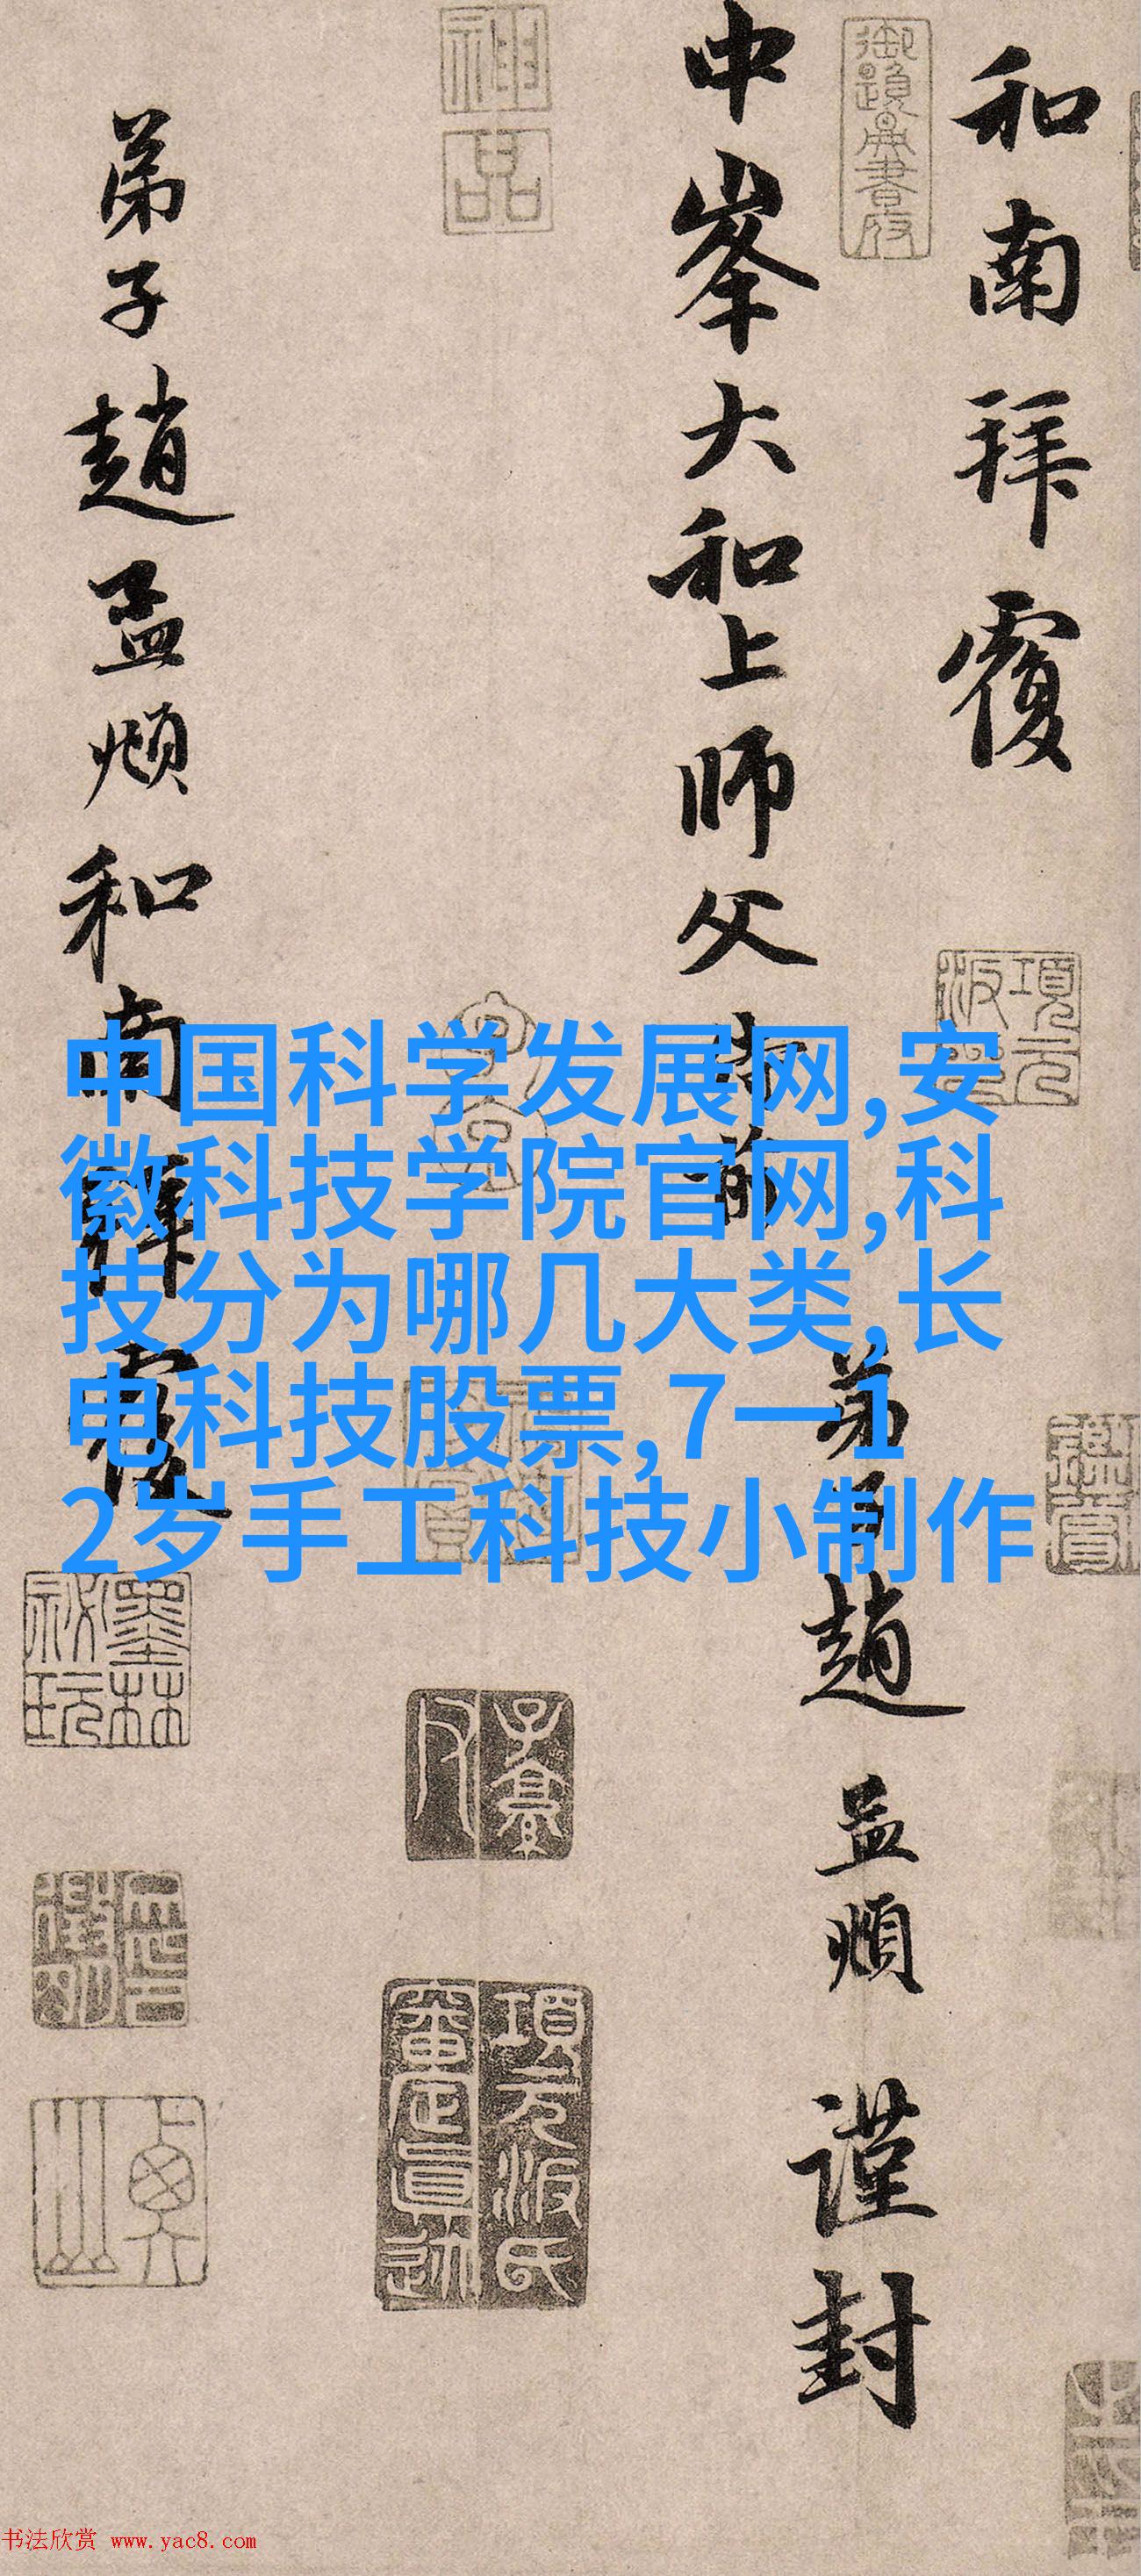 和南拜覆
中峯大和上師父侍前
弟子趙孟頫謹封
弟子趙孟頫和南拜覆
神品
項元汴印
墨林祕玩
項元汴氏審定真蹟
中国科学发展网,安
徽科技学院官网,科
技分为哪几大类,长
电科技股票,7一1
2岁手工科技小制作
书法欣赏 www.yac8.com